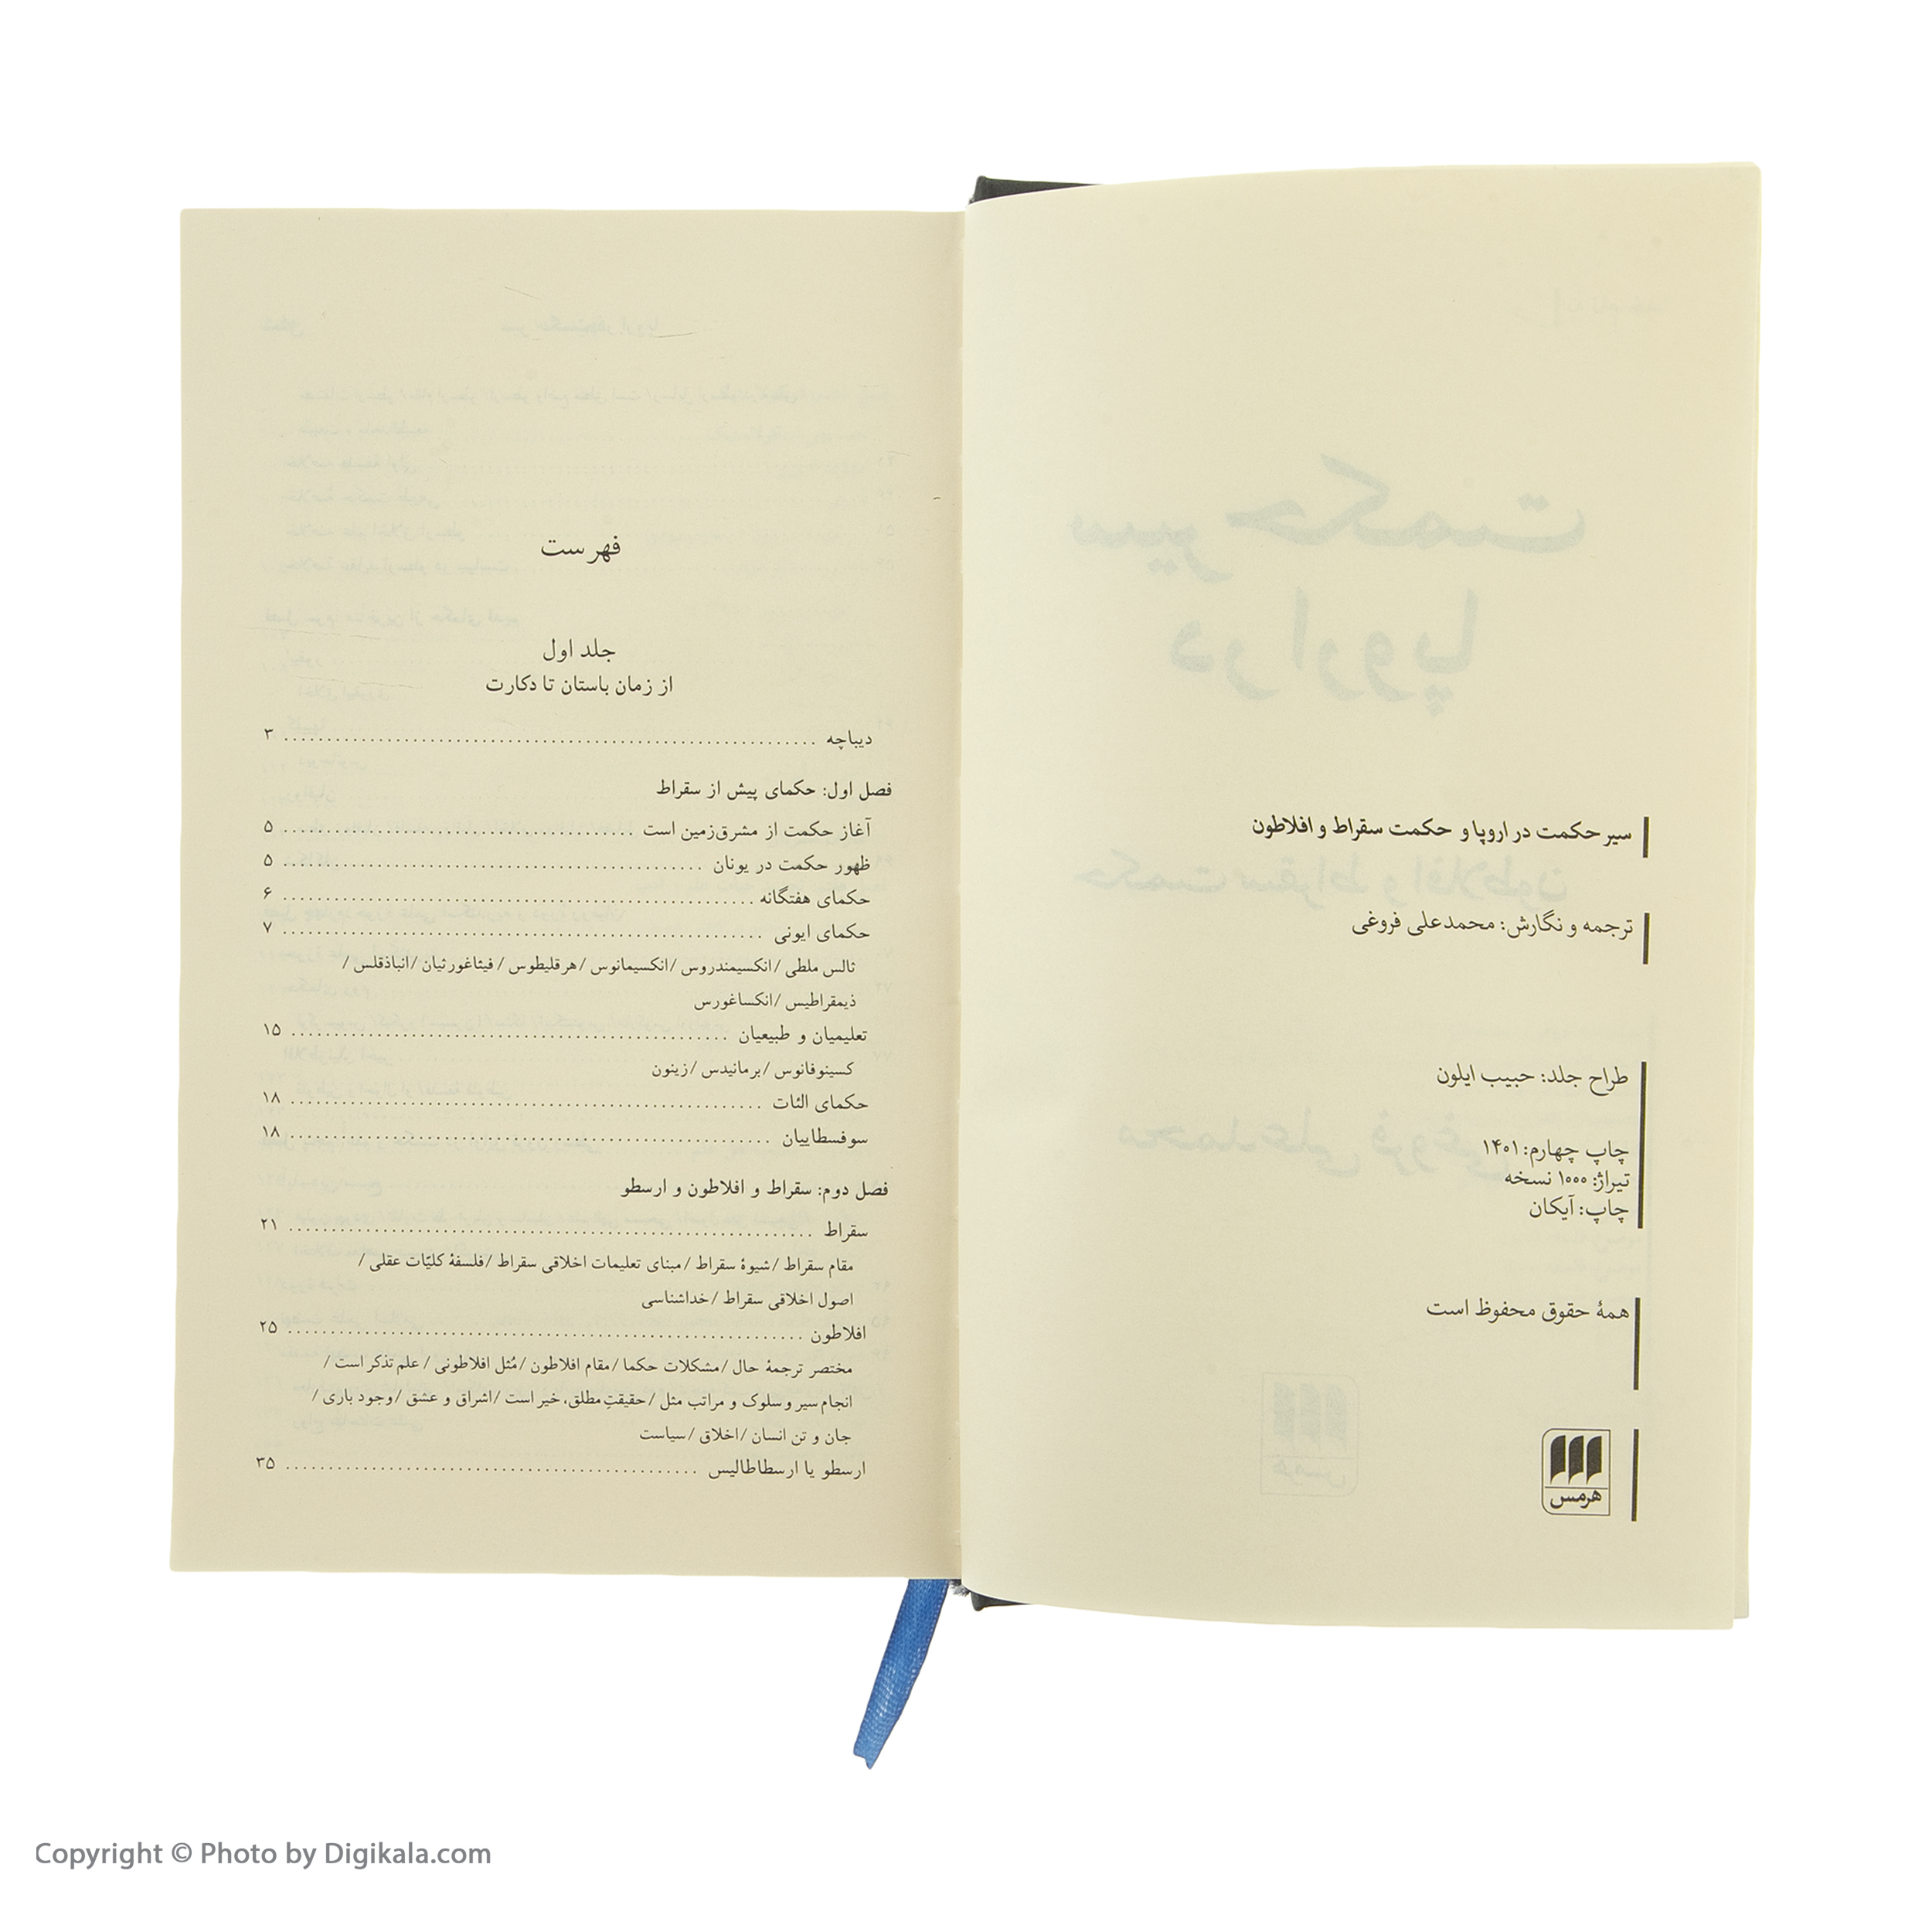 سیر حکمت در اروپا و حکمت سقراط و افلاطون
ترجمه و نگارش: محمدعلی فروغی
طراح جلد: حبیب ایلون
چاپ چهارم: ۱۴۰۱
تیراژ: ۱۰۰۰ نسخه
چاپ: آیکان
همهٔ حقوق محفوظ است
هرمس
فهرست
جلد اول
از زمان باستان تا دکارت
دیباچه ........ ۳
فصل اول: حکمای پیش از سقراط
آغاز حکمت از مشرق‌زمین است ........ ۵
ظهور حکمت در یونان ........ ۵
حکمای هفتگانه ........ ۶
حکمای ایونی ........ ۷
ثالس ملطی / انکسیمندروس / انکسیمانوس / هرقلیطوس / فیثاغورثیان / انباذقلس /
ذیمقراطیس / انکساغورس
تعلیمیان و طبیعیان ........ ۱۵
کسینوفانوس / برمانیدس / زینون
حکمای الئات ........ ۱۸
سوفسطاییان ........ ۱۸
فصل دوم: سقراط و افلاطون و ارسطو
سقراط ........ ۲۱
مقام سقراط / شیوهٔ سقراط / مبنای تعلیمات اخلاقی سقراط / فلسفهٔ کلیّات عقلی /
اصول اخلاقی سقراط / خداشناسی
افلاطون ........ ۲۵
مختصر ترجمهٔ حال / مشکلات حکما / مقام افلاطون / مُثل افلاطونی / علم تذکر است /
انجام سیر و سلوک و مراتب مثل / حقیقتِ مطلق، خیر است / اشراق و عشق / وجود باری /
جان و تن انسان / اخلاق / سیاست
ارسطو یا ارسطاطالیس ........ ۳۵
Copyright © Photo by Digikala.com